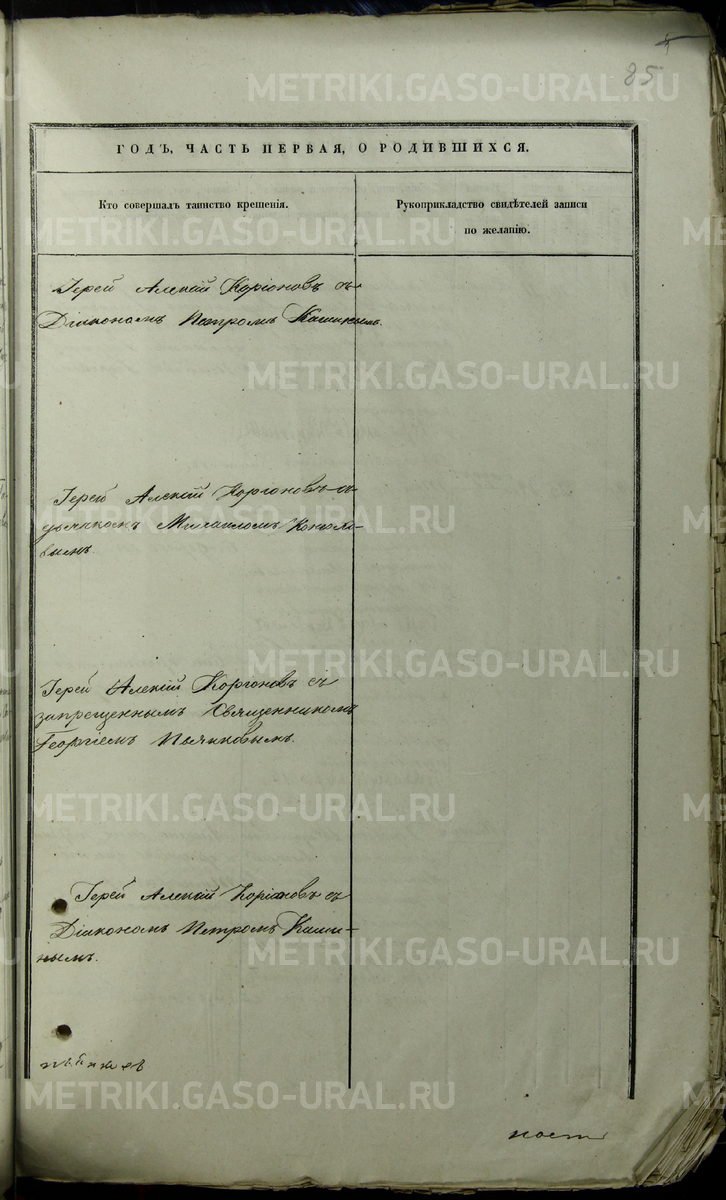 85
ГОДЪ, ЧАСТЬ ПЕРВАЯ, О РОДИВШИХСЯ.
Кто совершалъ таинство крещенія.
Рукоприкладство свидѣтелей записи
по желанію.
Іерей Алексій Коріоновъ съ
Діакономъ Петромъ Кашинымъ.
Іерей Алексій Коргоновъ съ
Михаиломъ
Іерей Алексій Коргоновъ съ
запрещеннымъ Священникомъ
Георгіемъ
Іерей Алексій Коріоновъ съ
Діакономъ Петромъ Каши-
нымъ.
METRIKI.GASO-URAL.RU